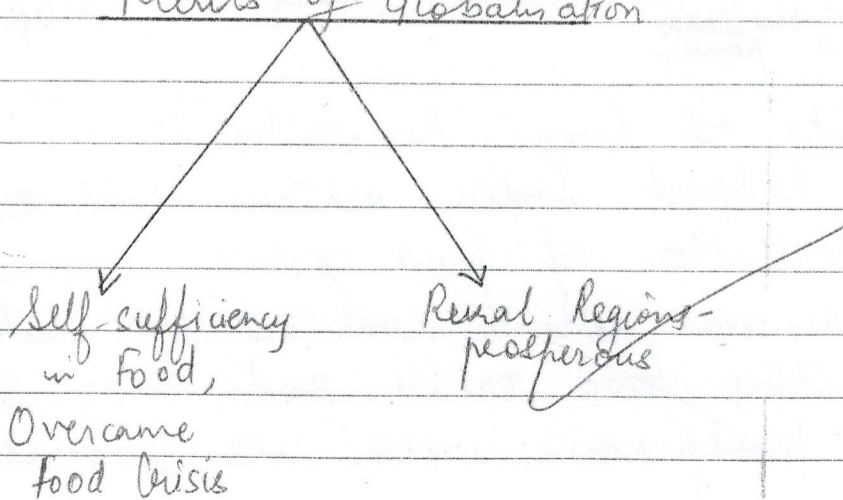 Merits of Globalisation
Self-sufficiency
in Food,
Overcame
food Crisis
Rural Regions-
prosperous